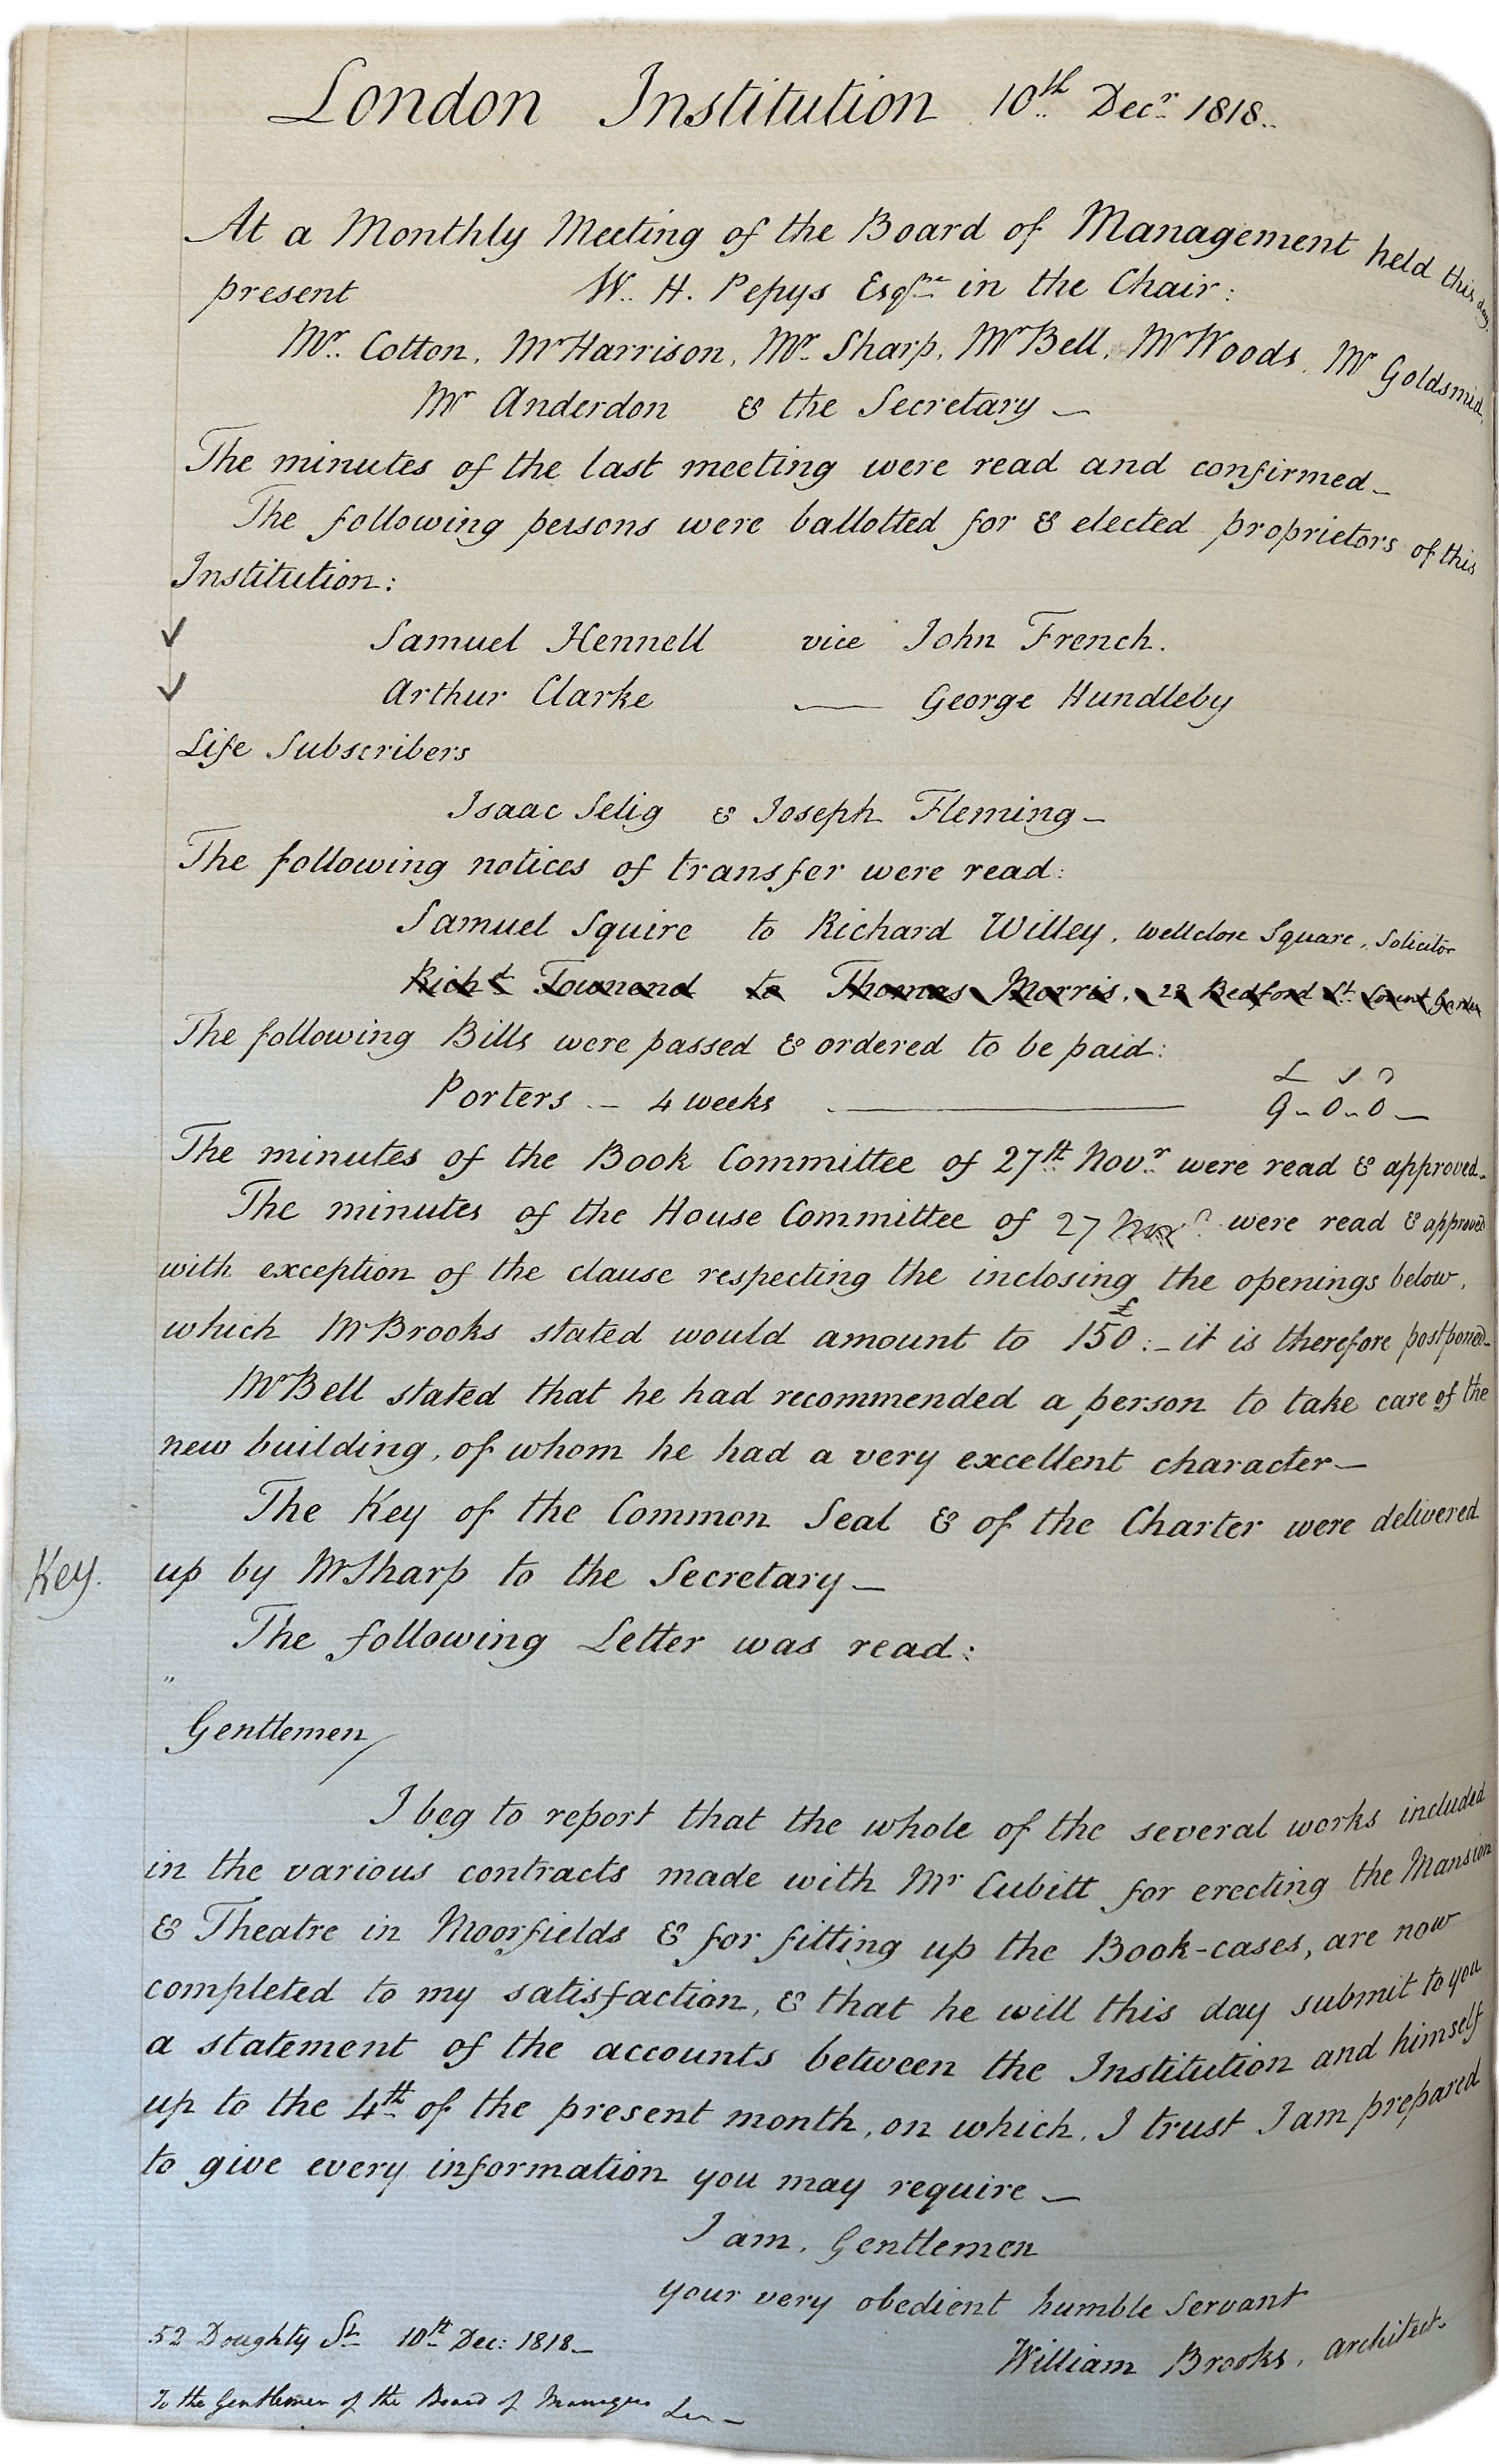 London Institution 10th Decr 1818..
At a Monthly Meeting of the Board of Management held this day,
present W. H. Pepys Esqre in the Chair:
Mr. Cotton, Mr Harrison, Mr. Sharp, Mr Bell, Mr Woods, Mr Goldsmid,
Mr Anderdon & the Secretary —
The minutes of the last meeting were read and confirmed —
The following persons were ballotted for & elected proprietors of this
Institution:
✓ Samuel Hennell vice John French.
✓ Arthur Clarke — George Hundleby
Life Subscribers
Isaac Selig & Joseph Fleming —
The following notices of transfer were read:
Samuel Squire to Richard Willey, Wellclose Square, Solicitor
Richd Townend to Thomas Morris, 22 Bedford St. Covent Garden
The following Bills were passed & ordered to be paid:
£ s d
Porters — 4 weeks — 9 - 0 - 0 —
The minutes of the Book Committee of 27th Novr were read & approved —
The minutes of the House Committee of 27 were read & approved
with exception of the clause respecting the inclosing the openings below,
which Mr Brooks stated would amount to £150: — it is therefore postponed —
Mr Bell stated that he had recommended a person to take care of the
new building, of whom he had a very excellent character —
The Key of the Common Seal & of the Charter were delivered
Key. up by Mr Sharp to the Secretary —
The following Letter was read:
"
Gentlemen/
I beg to report that the whole of the several works included
in the various contracts made with Mr Cubitt for erecting the Mansion
& Theatre in Moorfields & for fitting up the Book-cases, are now
completed to my satisfaction, & that he will this day submit to you
a statement of the accounts between the Institution and himself
up to the 4th of the present month, on which, I trust I am prepared
to give every information you may require —
I am, Gentlemen
your very obedient humble Servant
William Brooks, architect.
52 Doughty St. 10th Dec: 1818 —
To the Gentlemen of the Board of Managers